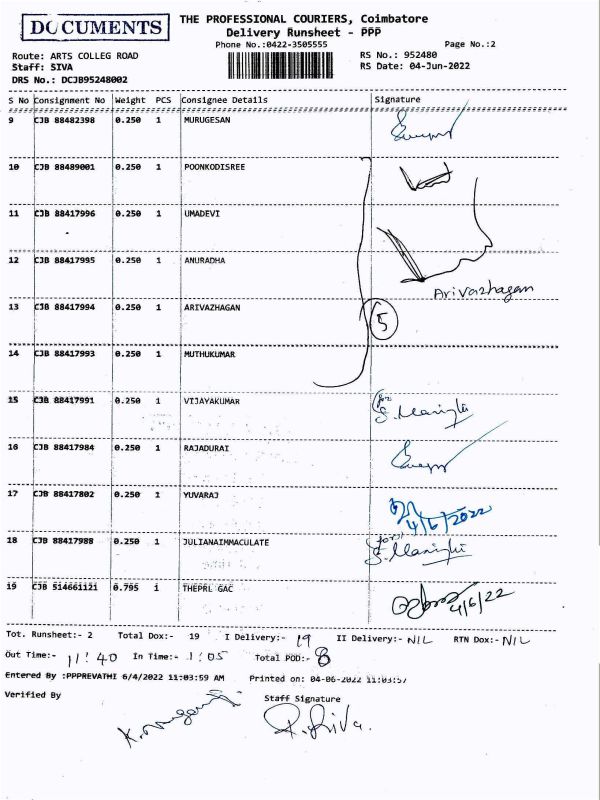 DOCUMENTS
THE PROFESSIONAL COURIERS, Coimbatore
Delivery Runsheet - PPP
Phone No.:0422-3505555
Page No.:2
Route: ARTS COLLEG ROAD
RS No.: 952480
Staff: SIVA
RS Date: 04-Jun-2022
DRS No.: DCJB95248002
S No Consignment No Weight PCS Consignee Details Signature
9 CJB 88482398 0.250 1 MURUGESAN
10 CJB 88489001 0.250 1 POONKODISREE
11 CJB 88417996 0.250 1 UMADEVI
12 CJB 88417995 0.250 1 ANURADHA
Arivazhagan
13 CJB 88417994 0.250 1 ARIVAZHAGAN
5
14 CJB 88417993 0.250 1 MUTHUKUMAR
15 CJB 88417991 0.250 1 VIJAYAKUMAR
for
16 CJB 88417984 0.250 1 RAJADURAI
17 CJB 88417802 0.250 1 YUVARAJ
4/6/2022
18 CJB 88417988 0.250 1 JULIANAIMMACULATE
for
19 CJB 514661121 0.795 1 THEPRL GAC
4/6/22
Tot. Runsheet:- 2 Total Dox:- 19 I Delivery:- 19 II Delivery:- NIL RTN Dox:- NIL
Out Time:- 11:40 In Time:- 1:05 Total POD:- 8
Entered By :PPPREVATHI 6/4/2022 11:03:59 AM Printed on: 04-06-2022 11:03:57
Verified By Staff Signature